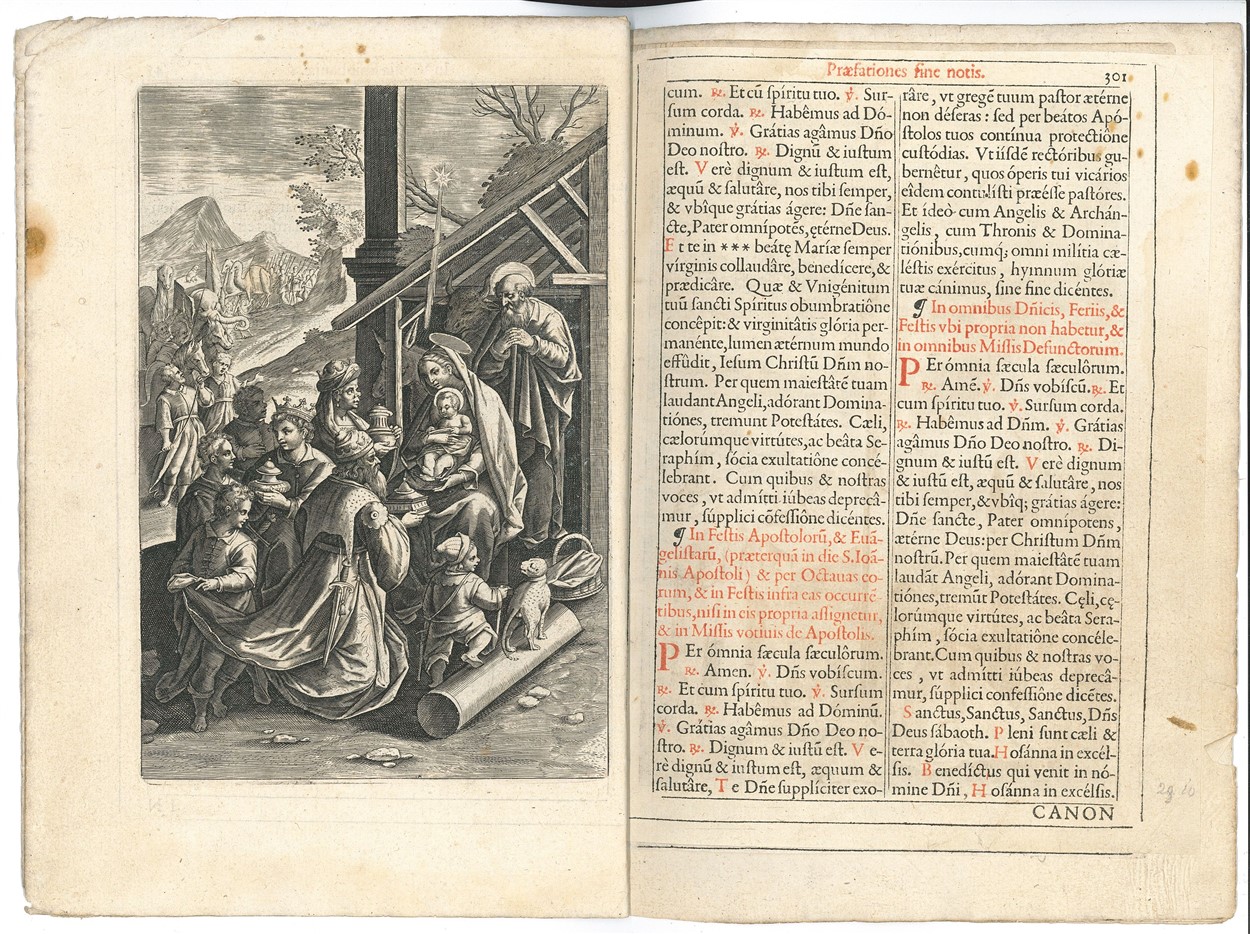 Præfationes sine notis. 301
cum. ℟. Et cũ spíritu tuo. ℣. Sur-
sum corda. ℟. Habêmus ad Dó-
minum. ℣. Grátias agâmus Dño
Deo nostro. ℟. Dignũ & iustum
est. Verè dignum & iustum est,
æquũ & salutâre, nos tibi semper,
& vbîque grátias ágere: Dñe san-
cte, Pater omnípotẽs, ętérne Deus.
Et te in *** beátę Maríæ semper
vírginis collaudâre, benedícere, &
prædicâre. Quæ & Vnigénitum
tuũ sancti Spíritus obumbratiône
concêpit: & virginitâtis glória per-
manénte, lumen ætérnum mundo
effûdit, Iesum Christũ Dñm no-
strum. Per quem maiestâtẽ tuam
laudant Angeli, adórant Domina-
tiónes, tremunt Potestátes. Cæli,
cælorúmque virtútes, ac beâta Se-
raphím, sócia exultatiône concé-
lebrant. Cum quibus & nostras
voces, vt admítti iúbeas deprecâ-
mur, súpplici cõfessiône dicéntes.
¶ In Festis Apostolorũ, & Euã-
gelistarũ, (præterquã in die S. Ioã-
nis Apostoli) & per Octauas eo-
rum, & in Festis infra eas occurrẽ-
tibus, nisi in eis propria assignetur,
& in Missis votiuis de Apostolis.
PEr ómnia sæcula sæculôrum.
℟. Amen. ℣. Dñs vobíscum.
℟. Et cum spíritu tuo. ℣. Sursum
corda. ℟. Habêmus ad Dóminũ.
℣. Grátias agâmus Dño Deo no-
stro. ℟. Dignum & iustũ est. Ve-
rè dignũ & iustum est, æquum &
salutâre, Te Dñe supplíciter exo-
râre, vt gregẽ tuum pastor ætérne
non déseras: sed per beátos Apó-
stolos tuos contínua protectiône
custódias. Vt iísdẽ rectóribus gu-
bernêtur, quos óperis tui vicários
eîdem contulísti præésse pastóres.
Et ídeò cum Angelis & Archán-
gelis, cum Thronis & Domina-
tiónibus, cumq; omni milítia cæ-
léstis exércitus, hymnum glóriæ
tuæ cánimus, sine fine dicéntes.
¶ In omnibus Dñicis, Feriis, &
Festis vbi propria non habetur, &
in omnibus Missis Defunctorum.
PEr ómnia sæcula sæculôrum.
℟. Amẽ. ℣. Dñs vobíscũ. ℟. Et
cum spíritu tuo. ℣. Sursum corda.
℟. Habêmus ad Dñm. ℣. Grátias
agâmus Dño Deo nostro. ℟. Di-
gnum & iustũ est. Verè dignum
& iustũ est, æquũ & salutâre, nos
tibi semper, & vbîq; grátias ágere:
Dñe sancte, Pater omnípotens,
ætérne Deus: per Christum Dñm
nostrũ. Per quem maiestátẽ tuam
laudãt Angeli, adórant Domina-
tiónes, tremũt Potestátes. Cęli, cę-
lorúmque virtútes, ac beâta Sera-
phím, sócia exultatiône concéle-
brant. Cum quibus & nostras vo-
ces, vt admítti iúbeas deprecâ-
mur, súpplici confessiône dicẽtes.
Sanctus, Sanctus, Sanctus, Dñs
Deus sábaoth. Pleni sunt cæli &
terra glória tua. Hosánna in excél-
sis. Benedíctus qui venit in nó-
mine Dñi, Hosánna in excélsis.
CANON